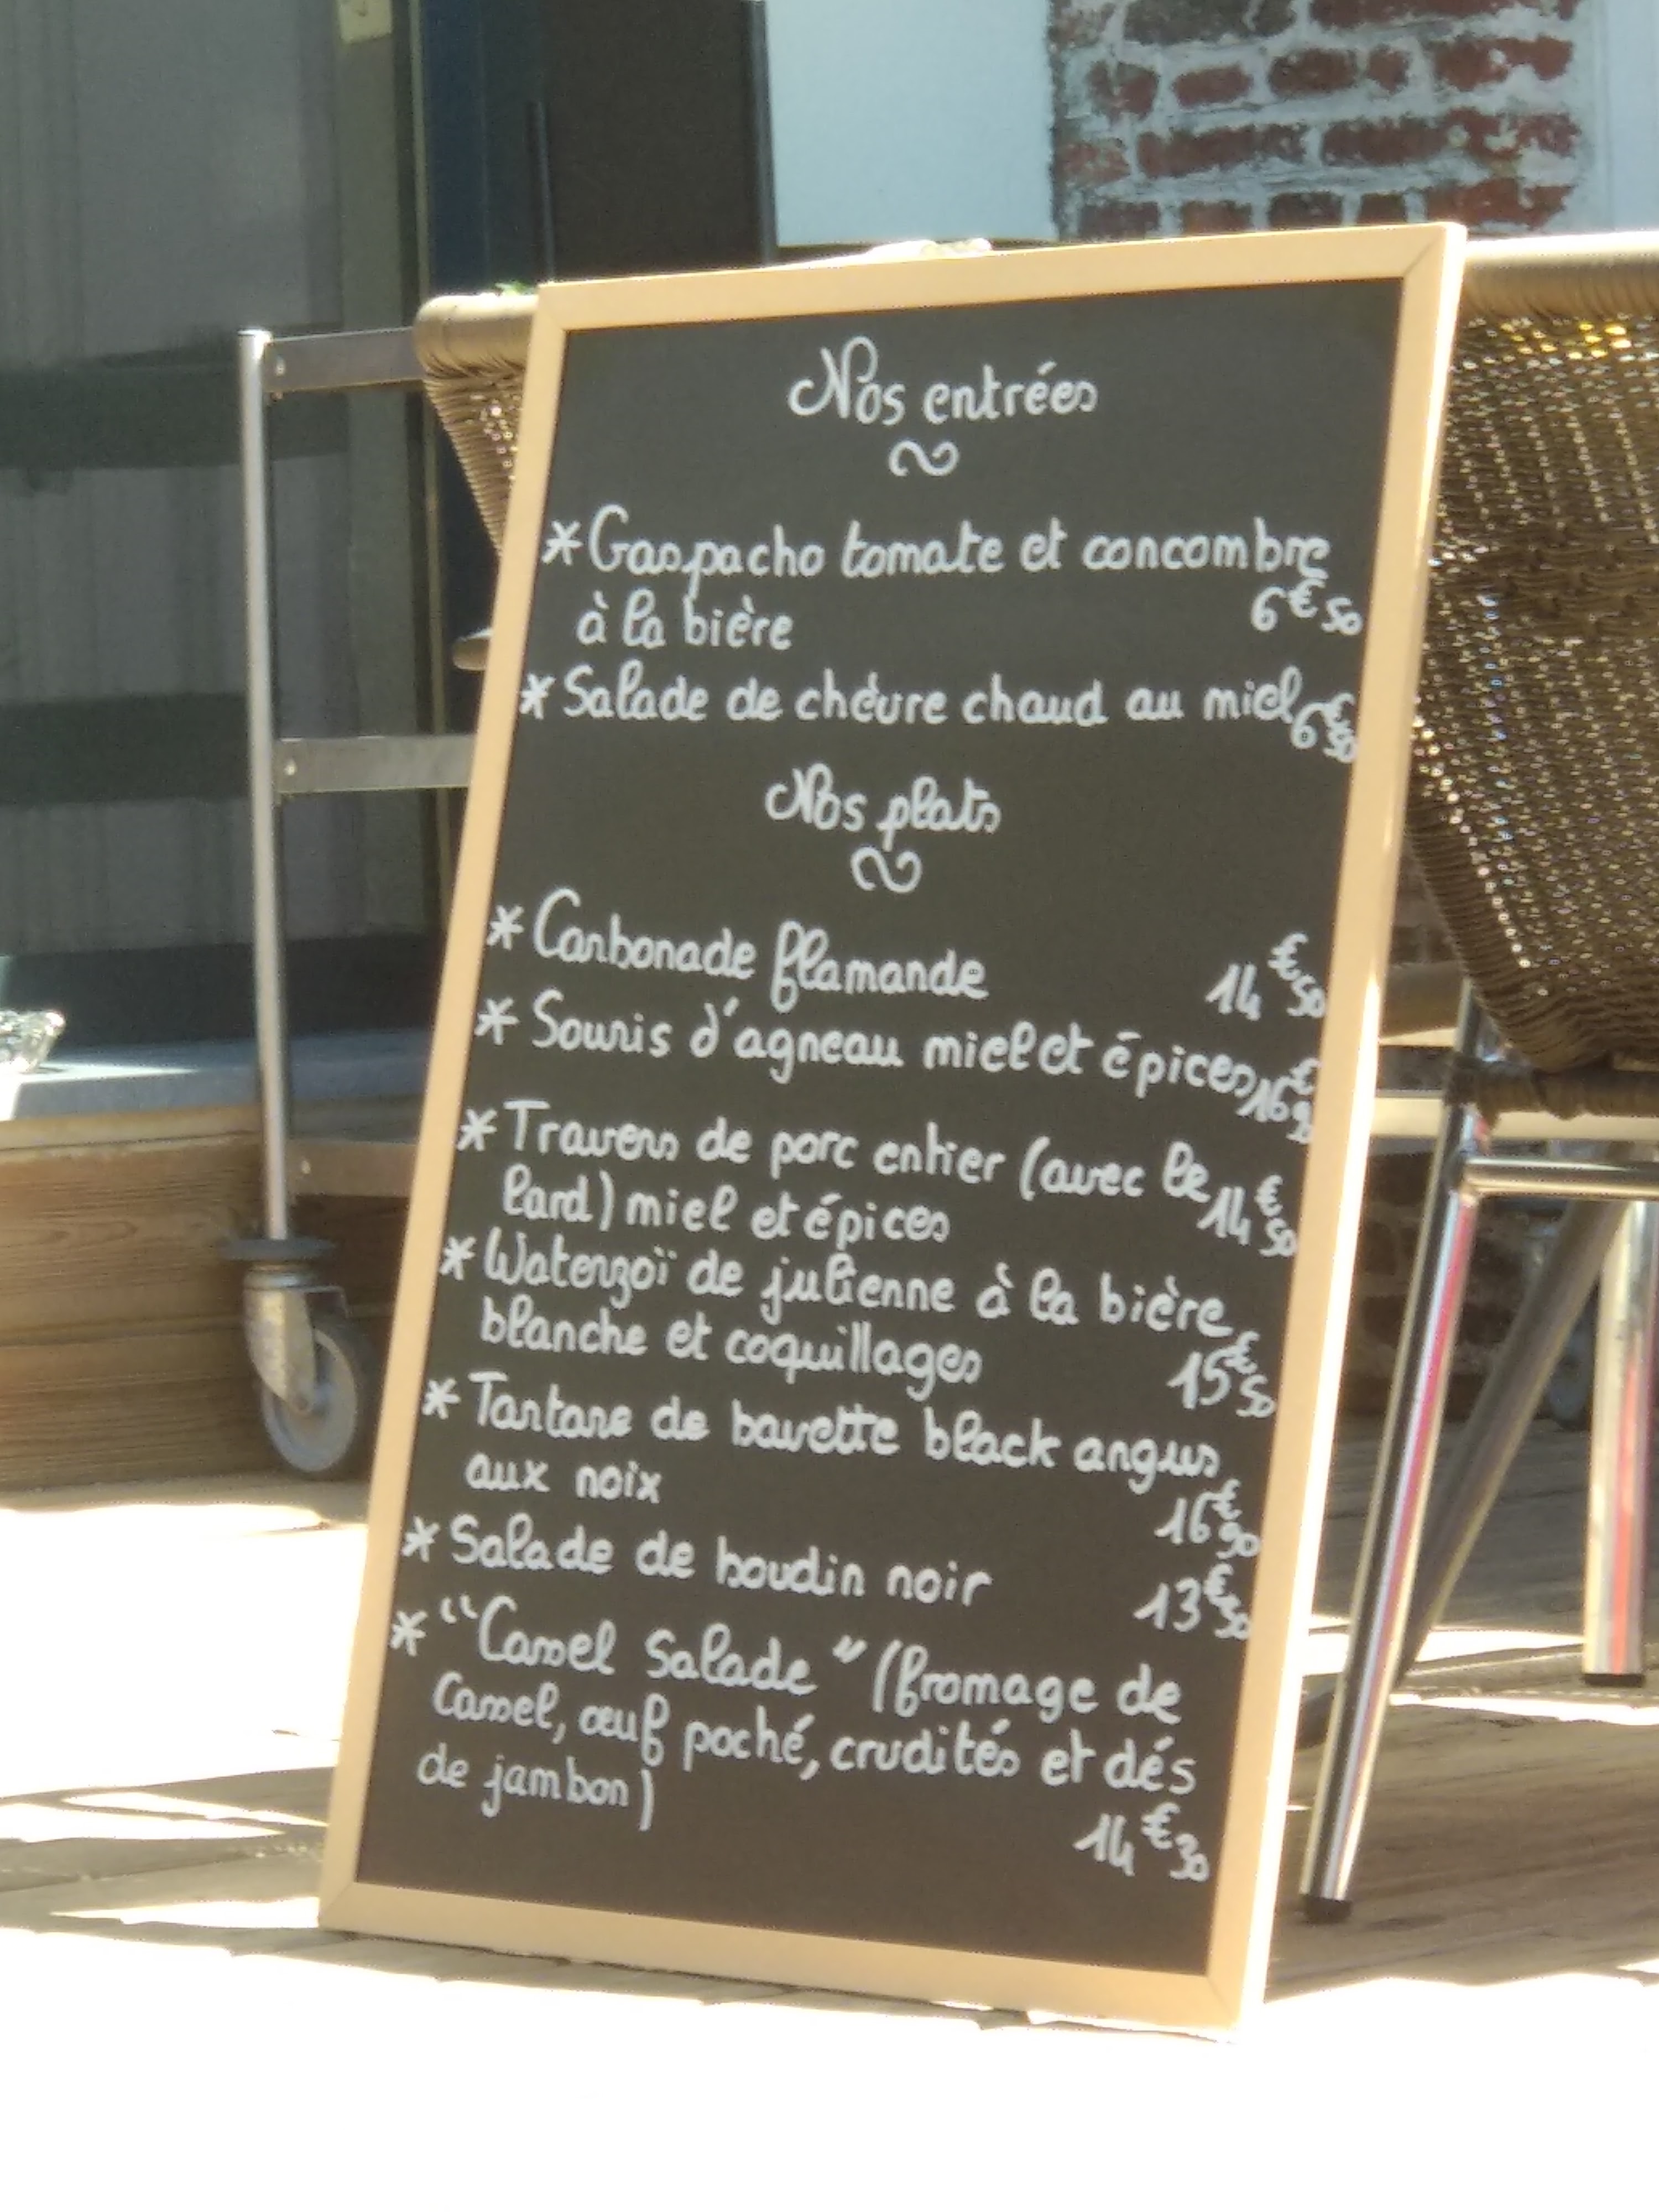 Nos entrées
* Gaspacho tomate et concombre
à la bière 6€50
* Salade de chèvre chaud au miel 6€50
Nos plats
* Carbonade flamande 14€50
* Souris d'agneau miel et épices 16€
* Travers de porc entier (avec le 14€50
lard) miel et épices
* Waterzoï de julienne à la bière
blanche et coquillages 15€50
* Tartare de bavette black angus
aux noix 16€90
* Salade de boudin noir 13€50
* "Cassel Salade" (fromage de
Cassel, œuf poché, crudités et dés
de jambon)
14€30